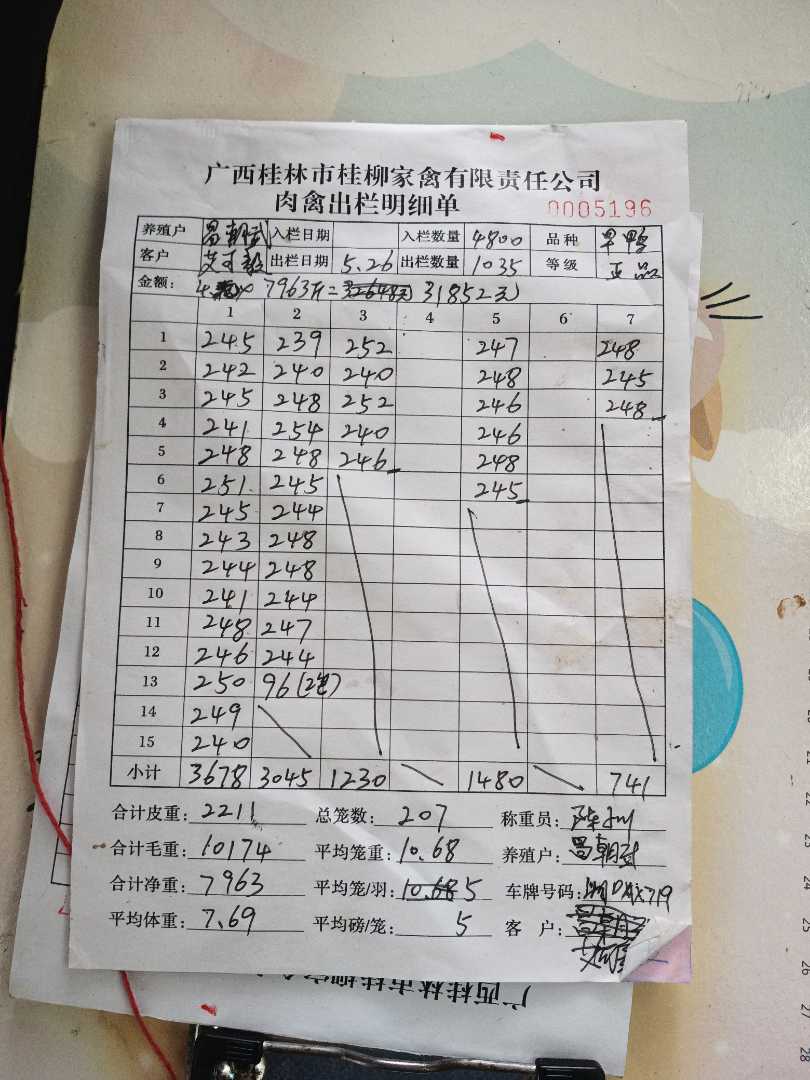 广西桂林市桂柳家禽有限责任公司
肉禽出栏明细单 0005196
养殖户 昌朝武 入栏日期 入栏数量 4800 品种 旱鸭
客户 出栏日期 5.26 出栏数量 1035 等级 亚品
金额: 7963斤= 31852元
1 2 3 4 5 6 7
1 245 239 252 247 248
2 242 240 240 248 245
3 245 248 252 246 248
4 241 254 240 246
5 248 248 246 248
6 251 245 245
7 245 244
8 243 248
9 244 248
10 241 244
11 248 247
12 246 244
13 250 96
14 249
15 240
小计 3678 3045 1230 1480 741
合计皮重: 2211 总笼数: 207 称重员:
合计毛重: 10174 平均笼重: 10.68 养殖户: 昌朝武
合计净重: 7963 平均笼/羽: 5 车牌号码:
平均体重: 7.69 平均磅/笼: 5 客户:
广西桂林市桂柳家